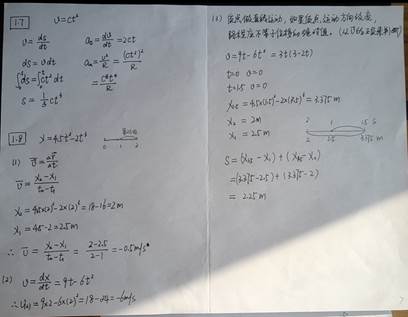 1.7 v=ct²
v=ds/dt a_t=dv/dt=2ct
ds=vdt a_n=v²/R=(ct²)²/R
∫ds=∫ct²dt =c²t⁴/R
s=1/3 ct³
1.8 x=4.5t²-2t³
0 1 2
(1) v̄=Δx/Δt
v̄=x₂-x₁/t₂-t₁
x₂=4.5×(2)²-2×(2)³=18-16=2m
x₁=4.5-2=2.5m
∴ v̄=x₂-x₁/t₂-t₁=2-2.5/2-1=-0.5m/s
(2) v=dx/dt=9t-6t²
∴v(2)=9×2-6×(2)²=18-24=-6m/s
(3) 质点做直线运动,如果质点运动方向改变,
路程应不等于位移的绝对值。(以v的正负来判断)
v=9t-6t²=3t(3-2t)
t=0 v=0
t=1.5 v=0
x₁.₅=4.5×(1.5)²-2×(1.5)³=3.375m
x₂=2m
x₁=2.5m
2 1 1.5 s
2 2.5 3.375 m
S=(x₁.₅-x₁)+(x₁.₅-x₂)
=(3.375-2.5)+(3.375-2)
=2.25m